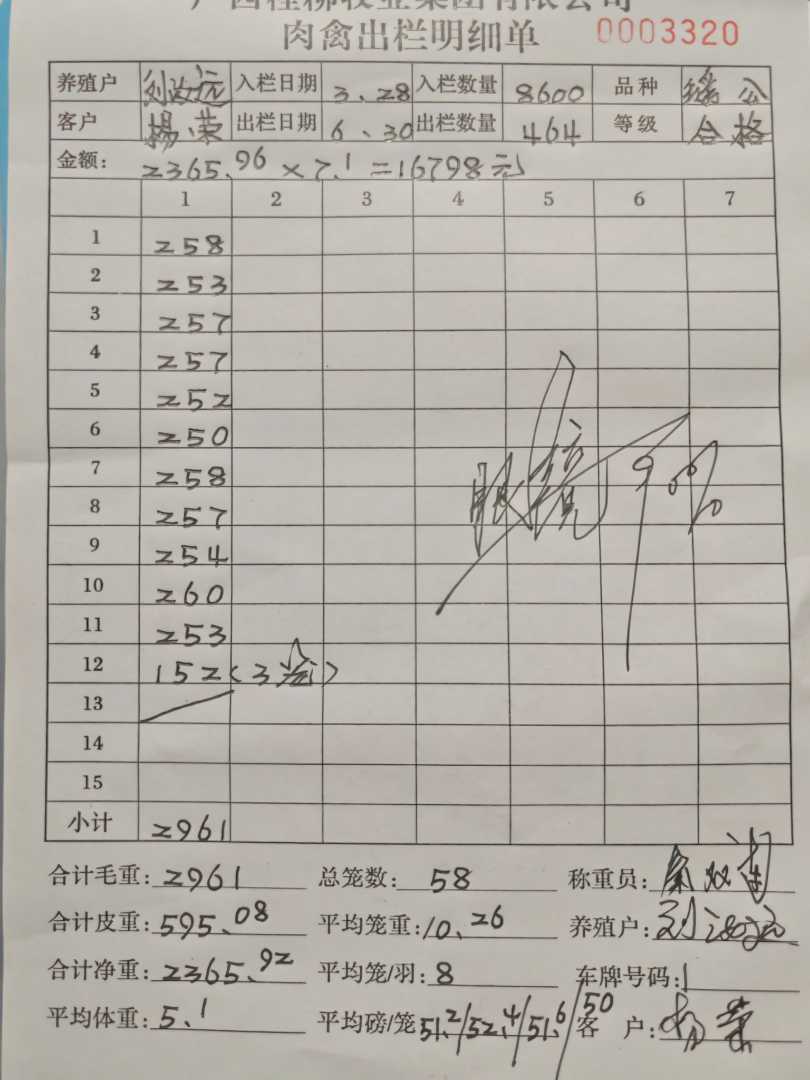 广西桂柳牧业集团有限公司
肉禽出栏明细单 0003320
养殖户 刘政远 入栏日期 3、28 入栏数量 8600 品种 瑶公
客户 杨荣 出栏日期 6、30 出栏数量 464 等级 合格
金额: 2365.96×7.1=16798元
1 2 3 4 5 6 7
1 258
2 253
3 257
4 257
5 252
6 250
7 258
8 257
9 254
10 260
11 253
12 152(3笼)
13
14
15
小计 2961
合计毛重: 2961 总笼数: 58 称重员:
合计皮重: 595.08 平均笼重: 10.26 养殖户:
合计净重: 2365.92 平均笼/羽: 8 车牌号码:
平均体重: 5.1 平均磅/笼 51.2/52.4/51.6/50 客 户: 杨荣